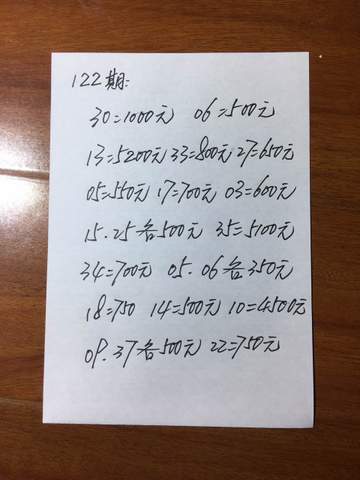 122期:
30=1000元 06=500元
13=5200元 33=800元 27=650元
05=550元 17=700元 03=600元
15.25各500元 35=5100元
34=700元 05.06各350元
18=750 14=500元 10=4500元
09.37各500元 22=750元